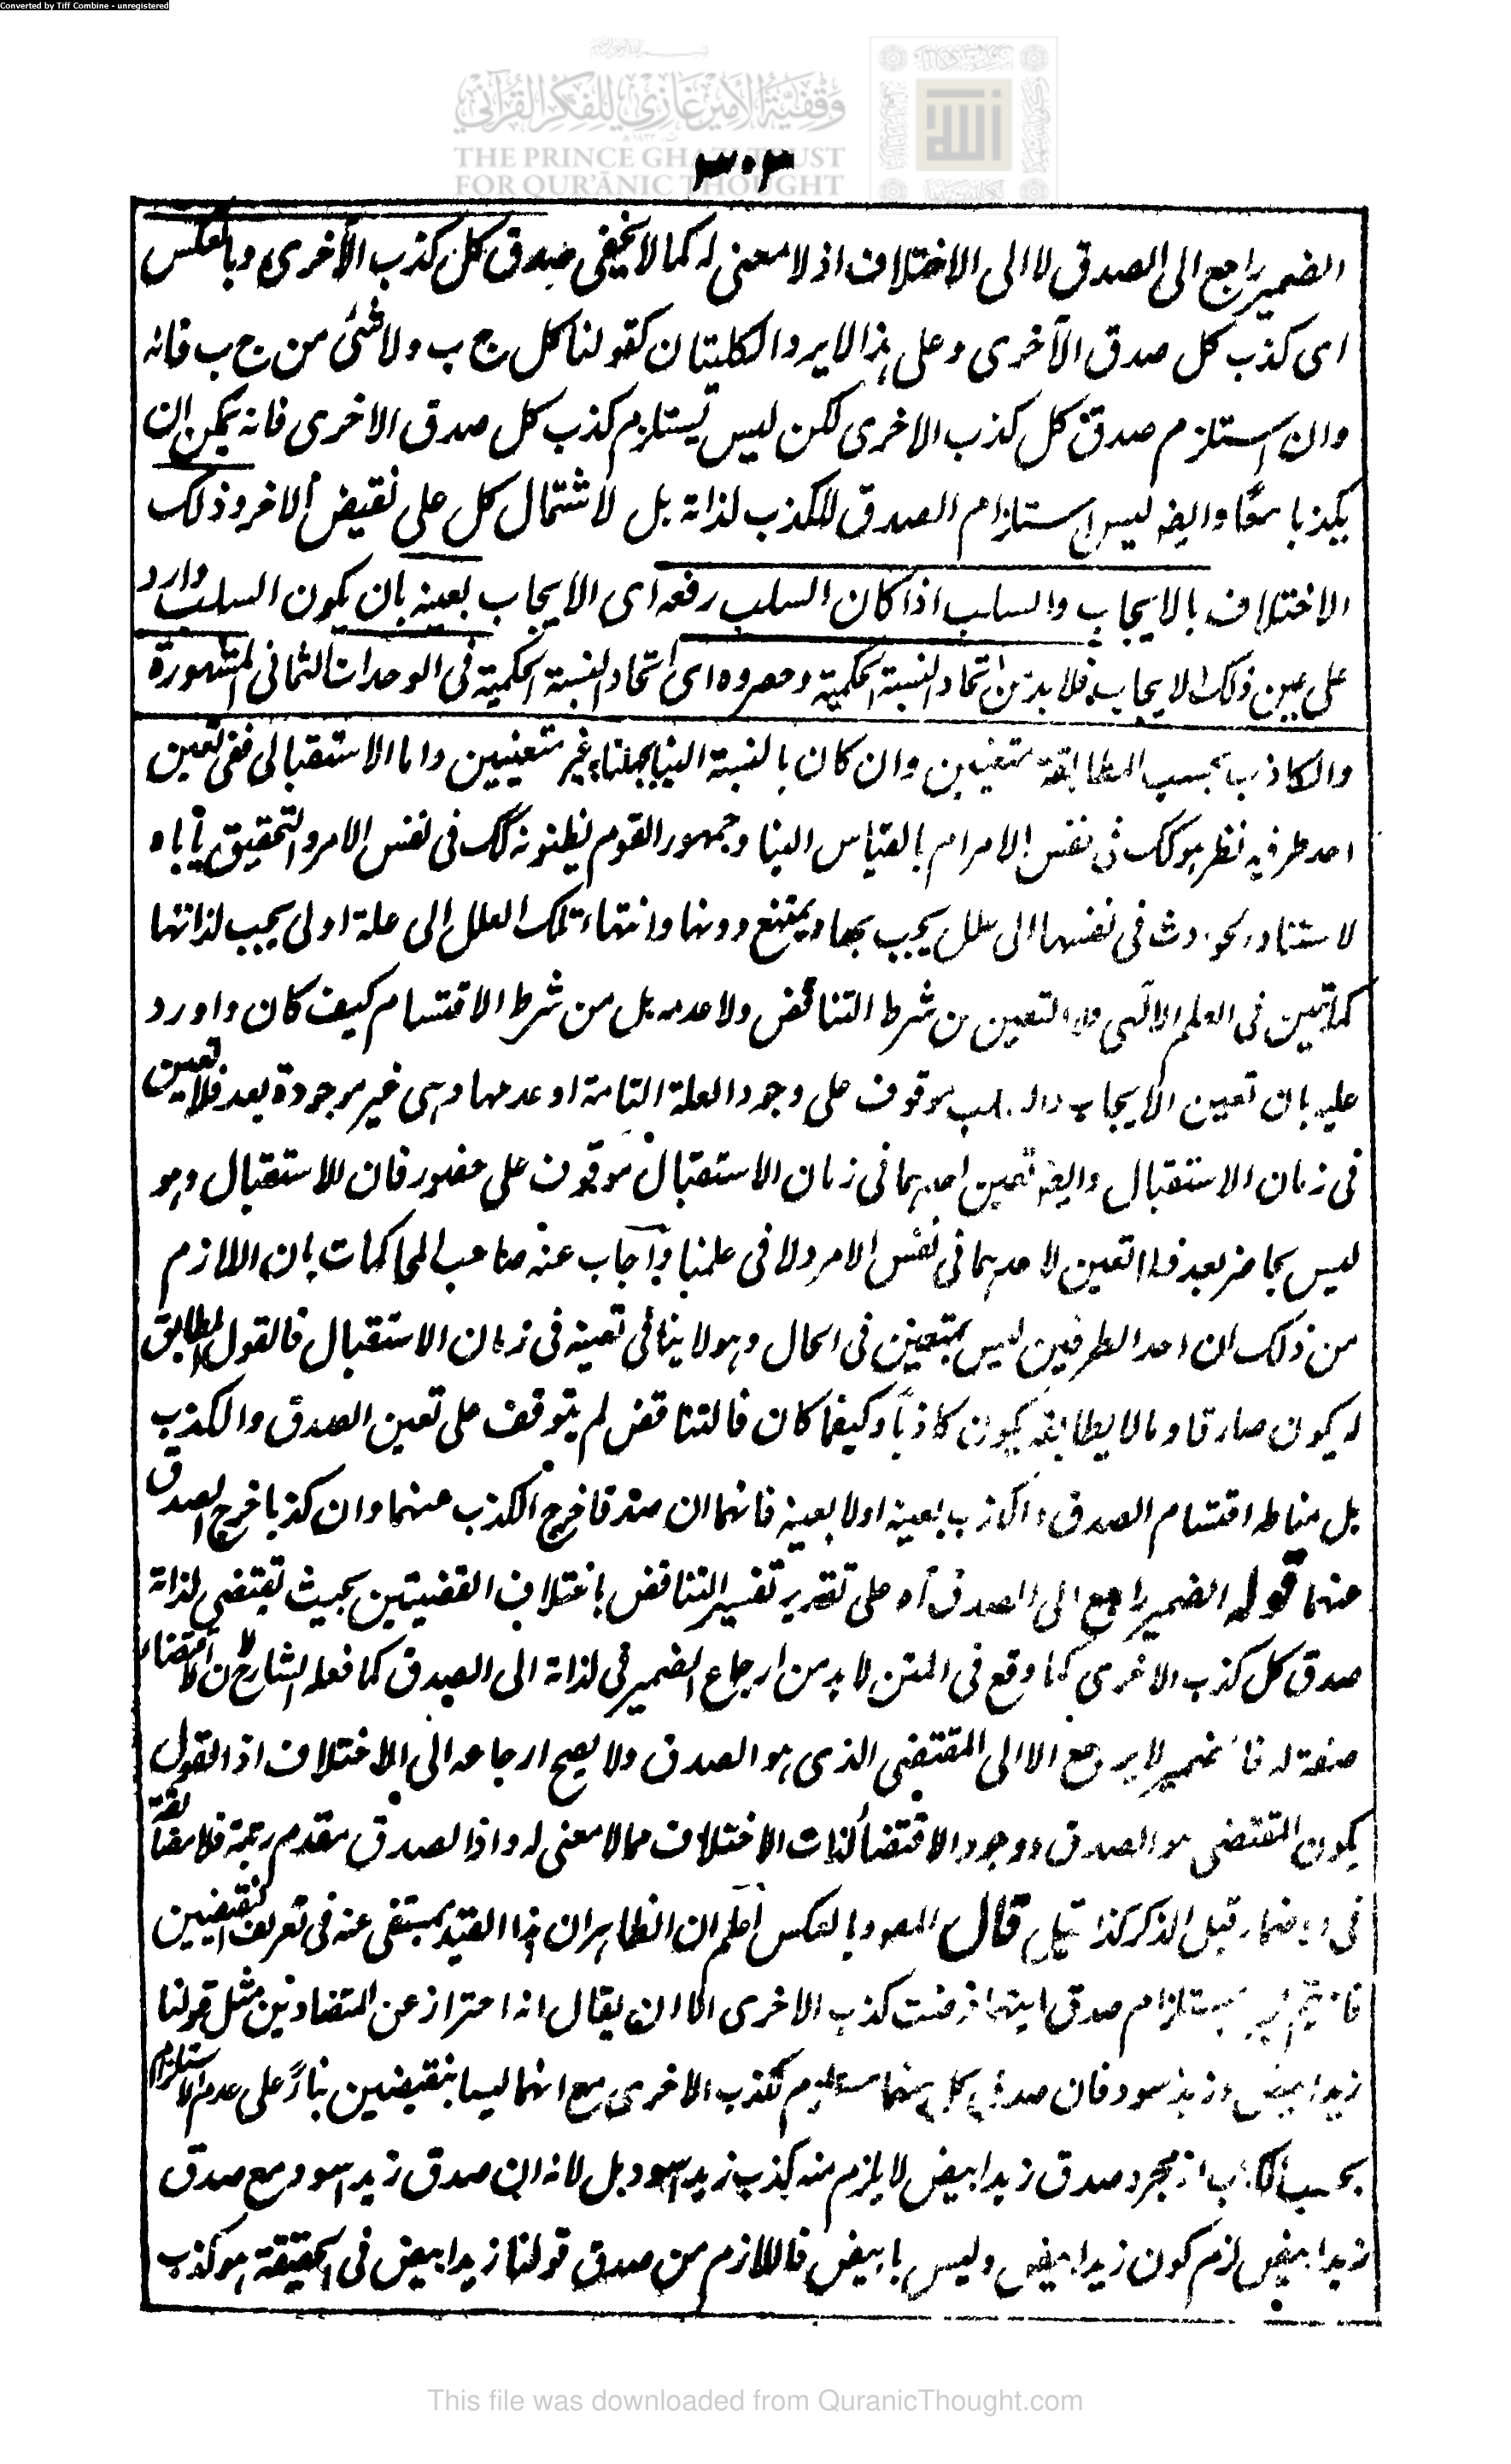 Converted by Tiff Combine - unregistered
وقفية الأمير غازي للفكر القرآني
THE PRINCE GHAZI TRUST
FOR QUR'ĀNIC THOUGHT
٣٠٣
الضمير راجع الى الصدق لا الى الاختلاف اذ لا معنى له كما لا يخفى صدق كل كذب الاخرى وبالعكس
اى كذب كل صدق الآخرى وعلى هذا لا يرد الكليتان كقولنا كل ج ب ولا شئ من ج ب فانه
وان استلزم صدق كل كذب الاخرى لكن ليس يستلزم كذب كل صدق الاخرى فانه يمكن ان
يكذبا معًا وايضه ليس استلزام الصدق للكذب لذاته بل لاشتمال كل على نقيض الاخر وذلك
الاختلاف بالايجاب والسلب اذا كان السلب رفعه اى الايجاب بعينه بان يكون السلب وارد
على عين ذلك الايجاب فلا بد من اتحاد النسبة الحكمية وحصروه اى اتحاد النسبة الحكمية فى الوحدات الثمانى المشهورة
والكاذب بحسب المطابقة متعينين وان كان بالنسبة الينا بجهلنا غير متعينين واما الاستقبالى ففى تعين
احد طرفيه نظر هو كك فى نفس الامر ام بالقياس الينا وجمهور القوم يظنونه كك فى نفس الامر والتحقيق يأباه
لاستناد الحوادث فى نفسها الى علل يجب بها ويمتنع دونها وانتهاء تلك العلل الى علة اولى يجب لذاتها
كما تبين فى العلم الالهى فلا التعين من شرط التناقض ولا عدمه بل من شرط الاقتسام كيف كان واورد
عليه بان تعين الايجاب والسلب موقوف على وجود العلة التامة او عدمها وهى غير موجودة بعد فلا تعين
فى زمان الاستقبال وايضه تعين احدهما فى زمان الاستقبال موقوف على حضور فان للاستقبال وهو
ليس بحاضر بعد فلا تعين لاحدهما فى نفس الامر ولا فى علمنا واجاب عنه صاحب المحاكمات بان اللازم
من ذلك ان احد الطرفين ليس بمتعين فى الحال وهو لا ينافى تعينه فى زمان الاستقبال فالقول المطابق
له يكون صادقا وما لا يطابقه يكون كاذبا وكيفما كان فالتناقض لم يتوقف على تعين الصدق والكذب
بل مناطه اقتسام الصدق والكذب بعينه اولا بعينه فانهما ان صدقا خرج الكذب عنهما وان كذبا خرج الصدق
عنهما قوله الضمير راجع الى الصدق اه على تقدير تفسير التناقض باختلاف القضيتين بحيث تقتضى لذاته
صدق كل كذب الاخرى كما وقع فى المتن لا بد من ارجاع الضمير فى لذاته الى الصدق كما فعله الشارح لان الاقتضاء
صفة له فالضمير لا يرجع الا الى المقتضى الذى هو الصدق ولا يصح ارجاعه الى الاختلاف اذ القول
يكون المقتضى هو الصدق ووجود الاقتضأ لذات الاختلاف مما لا معنى له واذا لصدق مقدم رتبة فلا مضأيقة
فى الاضمار قبل الذكر كذا قيل قال المصـ وبالعكس اعلم ان الظاهر ان هذا القيد مستغنى عنه فى تعريف النقيضين
استلزام صدق ايتهما فرضت كذب الاخرى الا ان يقال انه احتراز عن المتضادين مثل قولنا
زيد ابيض وزيد اسود فان صدق كل منهما مستلزم لكذب الاخرى مع انهما ليسا بنقيضين بناءً على عدم الاستلزام
مجرد صدق زيد ابيض لا يلزم منه كذب زيد اسود بل لانه ان صدق زيد اسود مع صدق
زيد ابيض لزم كون زيد ابيض وليس بابيض فاللازم من صدق قولنا زيد ابيض فى الحقيقة هو كذب
This file was downloaded from QuranicThought.com